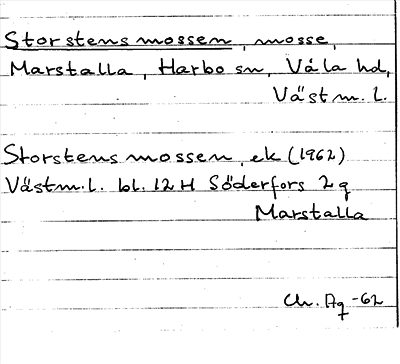 Storstensmossen, mosse,
Marstalla, Harbo sn, Våla hd,
Västm. l.
Storstensmossen, ek (1962)
Västm. l. bl. 12 H Söderfors 2 g
Marstalla
Ch. Ag -62